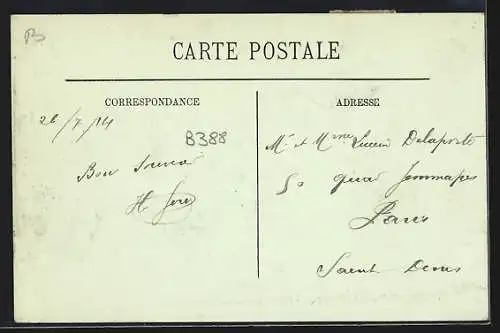 B
CARTE POSTALE
CORRESPONDANCE
ADRESSE
26/7/14
B388
Mr et Mme Lucien Delaporte
Bon Souvenir
50 quai Jemmapes
H.
Paris
Saint Denis